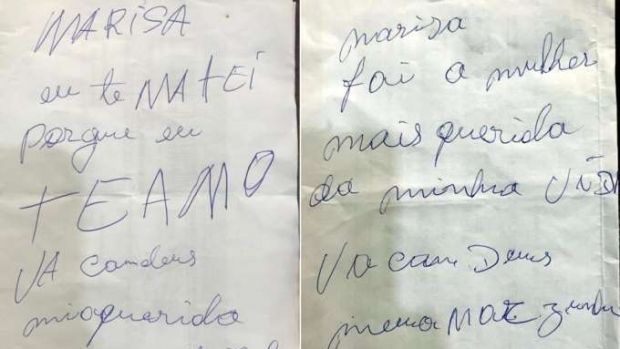 MARISA
eu te MATEI
porque eu
TE AMO
VA com deus
mia querida
marisa
foi a mulher
mais querida
da minha
Va com Deus